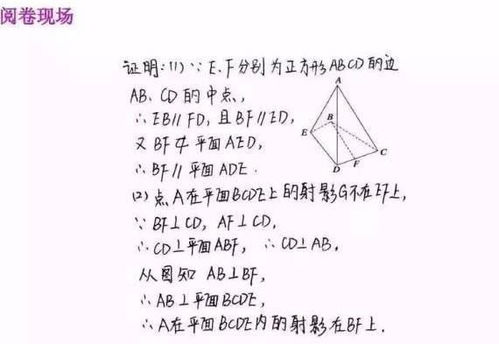 阅卷现场
证明:(1)∵E、F分别为正方形ABCD的边
AB、CD的中点,
∴EB∥FD,且BF∥ED,
又BF⊄平面AED,
∴BF∥平面ADE.
(2)点A在平面BCDE上的射影G不在EF上,
∵BF⊥CD,AF⊥CD,
∴CD⊥平面ABF,∴CD⊥AB,
从图知 AB⊥BF,
∴AB⊥平面BCDE,
∴A在平面BCDE内的射影在BF上.
A
B
E
C
D
F